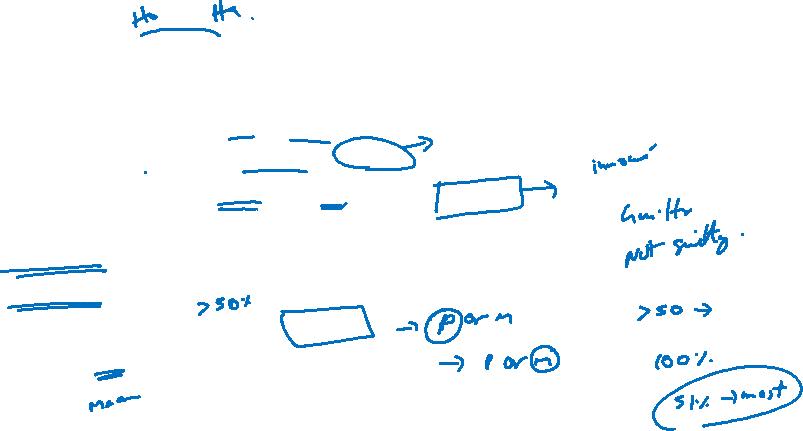 Ho Ha.
innocent
Guilty
Not guilty.
>50%
P or M
P or M
>50 →
100%
51% → most
Mean